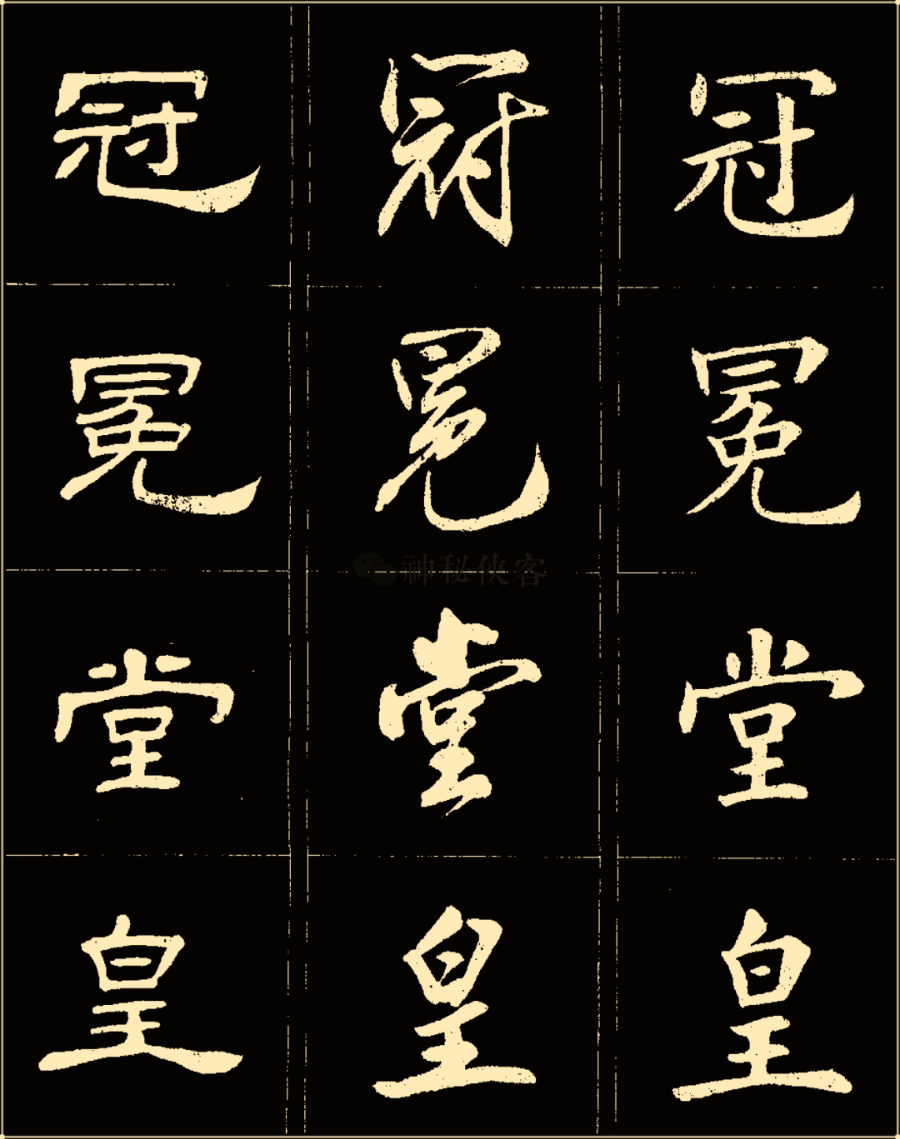 冠 冠 冠
冕 冕 冕
神秘侠客
堂 堂 堂
皇 皇 皇